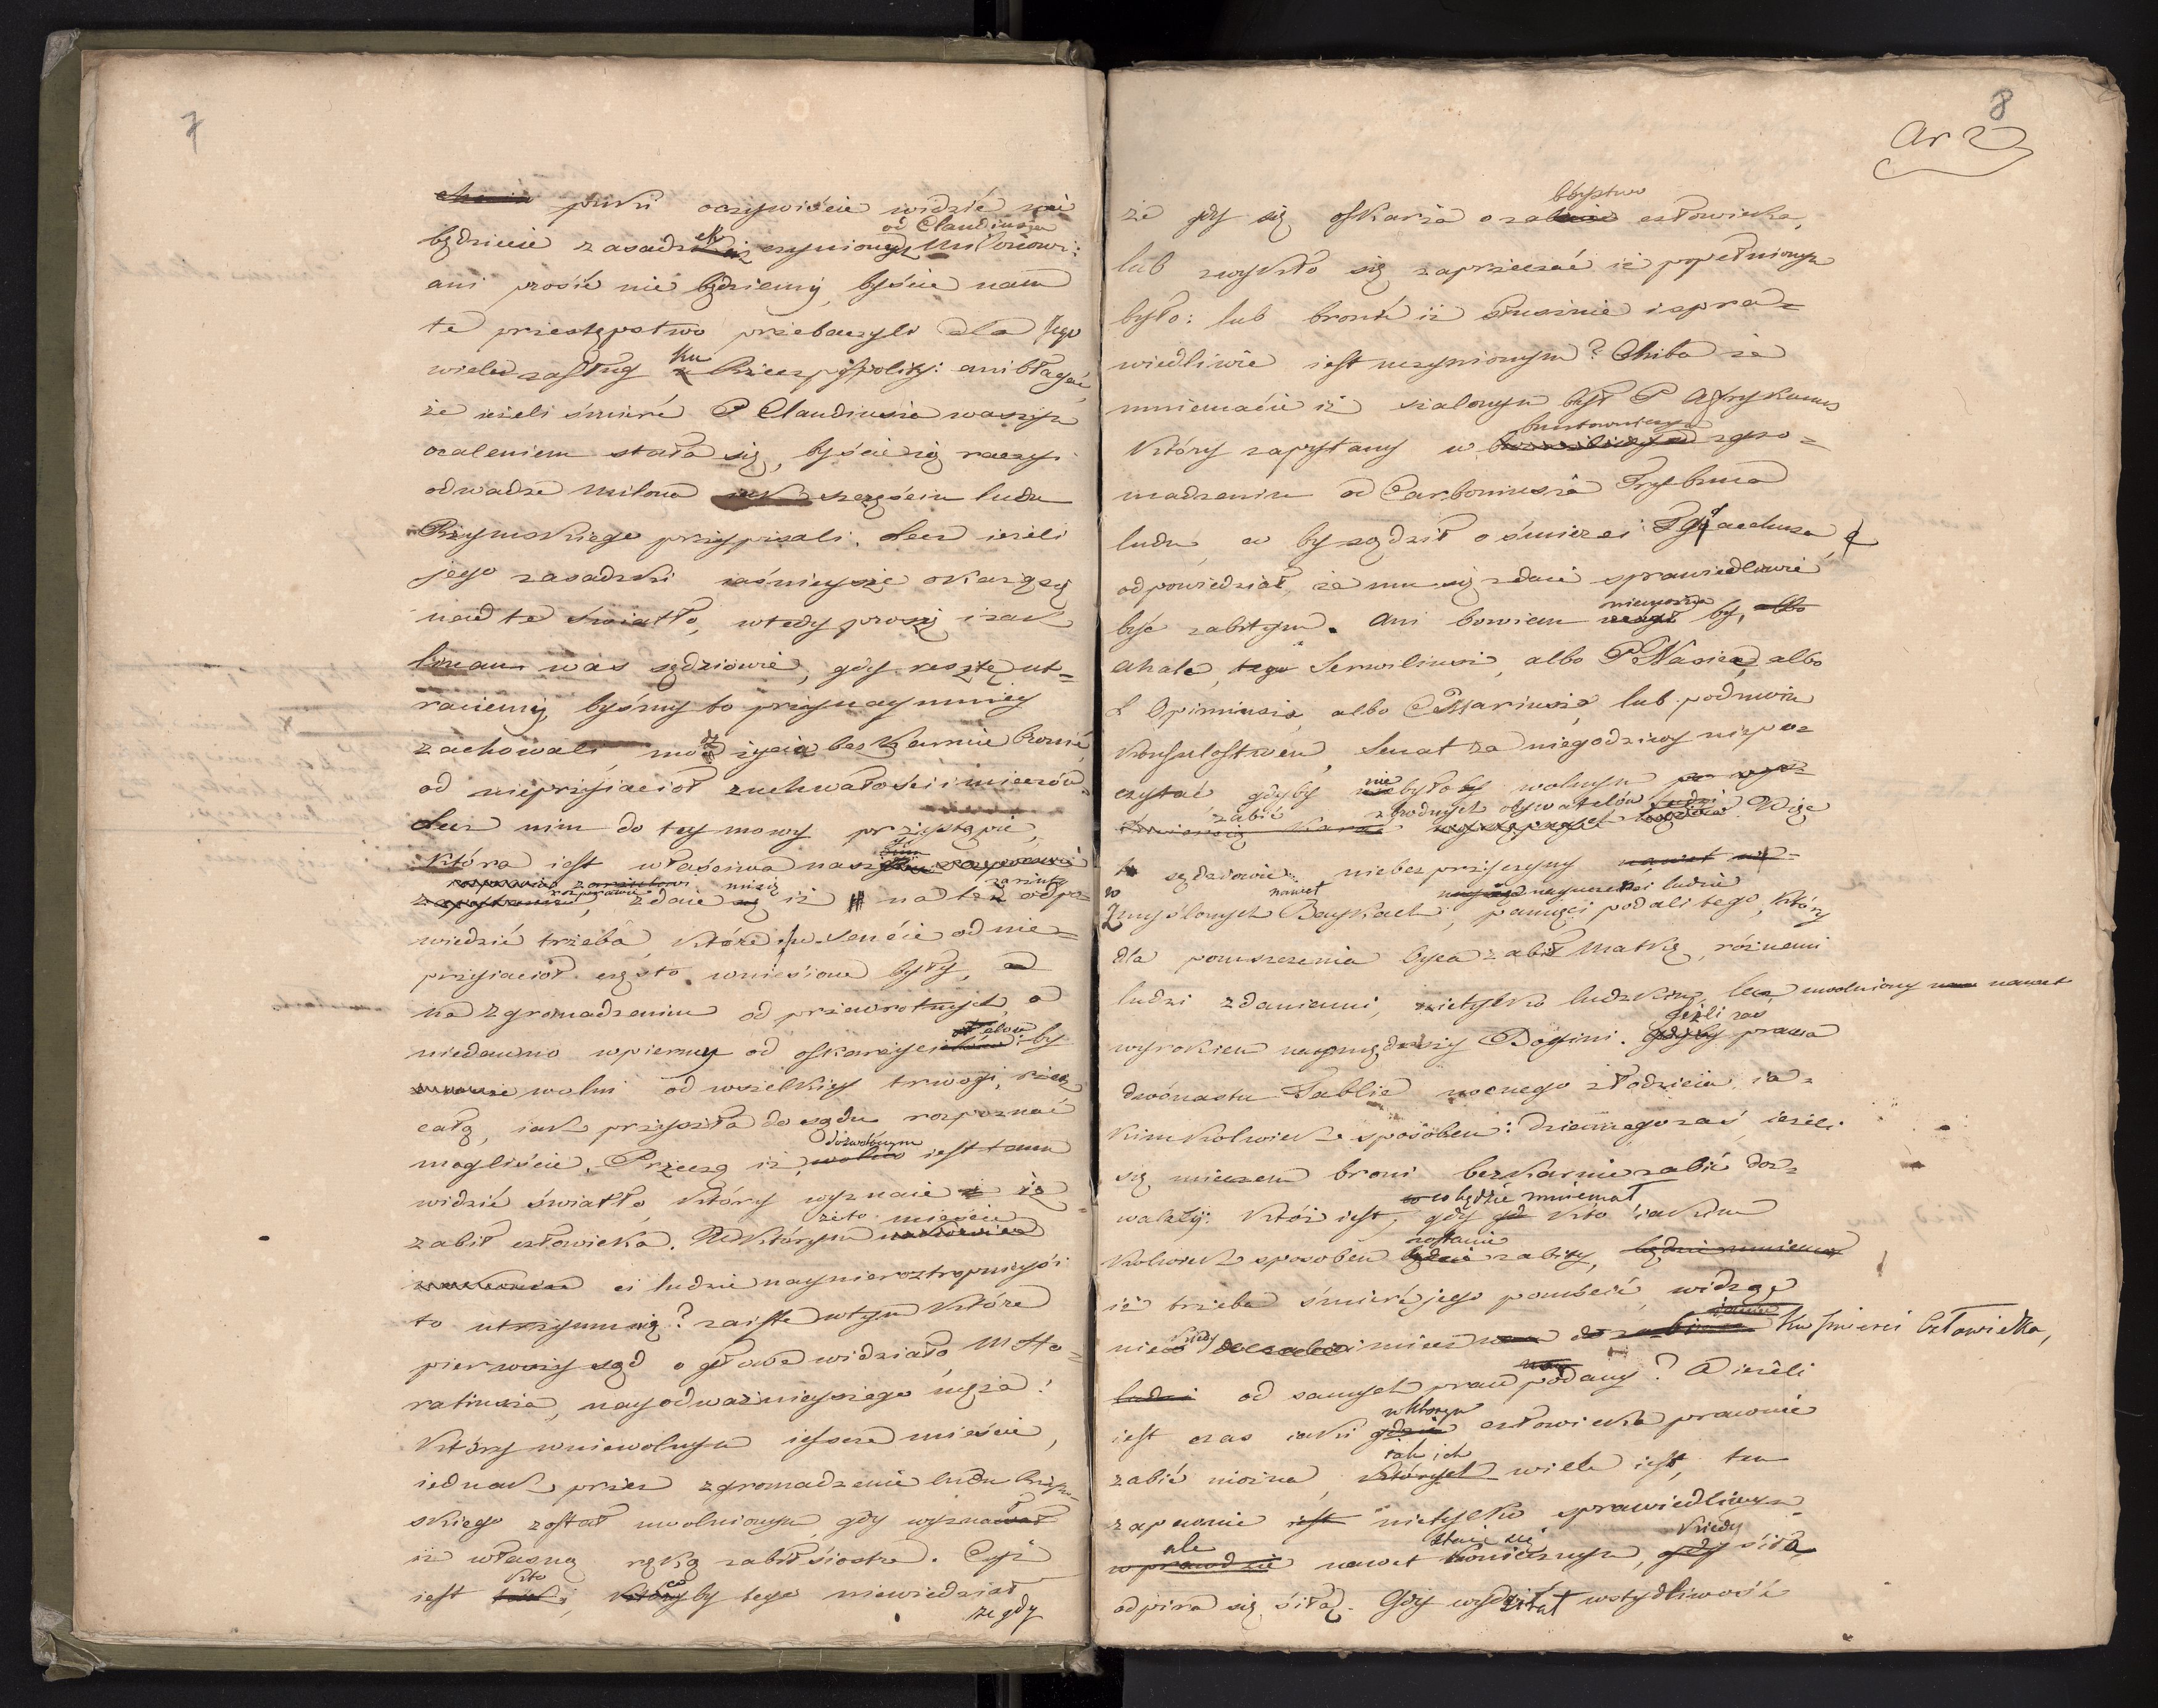 7
puki oczywiście widzić nie
od Claudiusza
będziecie zasadzek czynionych Milonowi:
ani prosić nie będziemy, byście nam
te przestępstwo przebaczyli dla jego
wielu zasług ku Rzeczypospolitéj: ani błagać,
że ieżeli śmierć P Claudiusza waszym
ocaleniem stała się, byście ią raczéj
odwadze Milona jak szczęściu ludu
Rzymskiego przypisali. Lecz ieżeli
jego zasadzki iaśnieysze okażą się
nad te światło, wtedy proszę i zak
linam was sędziowie, gdy resztę ut=
raciemy, byśmy to przynaymniéy
zachowali, módz życia bezkarnie bronić
od nieprzyiaciół zuchwałości i mieczów.
Lecz nim do tey mowy przystąpię,
która iest właściwa
rozprawie, zdaie mi się iż na te zarzuty odpo=
wiedzić trzeba, które w senácie od nie=
przyiaciół często wniesione były, a
na zgromadzeniu od przewrotnych, a
niedawno wpierwey od oskarżycielów: by
wolni od wszelkiéy trwogi, rzecz
całą, iak przyszła do sądu rozpoznać
mogliście. Przeczą iż dozwolonym iest temu
widzić światło, który wyznaie iż
zabił człowieka. W którym żeto mieście
ci ludzie naynieroztropnieysi
to utrzymuią? zaiste w tym które
pierwszy sąd o głowę widziało M Ho=
ratiusza, nayodważnieyszego męża!
który wniewolnym ieszcze mieście,
iednak przez zgromadzenie ludu Rzym=
skiego został uwolnionym, gdy wyznał
iż własną ręką zabił siostrę. Czyż
iest kto, co by tego niewiedział
że gdy
8
Ar 2
że gdy się oskarża o zabóystwo człowieka,
lub zwykło się zaprzeczać iż popełnionym
było: lub bronić iż słusznie i spra=
wiedliwie iest uczynionym? Chiba że
mniemacie iż szalonym był P Afrykanus
który zapytany w buntowniczym zgro=
madzeniu od Carboniusza Trybuna
ludu, co by sądził o śmierci T Gracchusa
odpowiedział, że mu się zdaie sprawiedliwie
być zabitym. Ani bowiem niemożna by,
Ahale, Serwiliusi, albo P Nasica, albo
L Opimiusza, albo C Mariusza, lub podmoim
Konsulostwem, Senat za niegodziwy niepo=
czytać gdyby nie było wolnym
zabić zbrodnych obywatelów. Więc
sędziowie niebezprzyczyny
w zmyślonych nawet Baykach, nayuczeńsi ludzie pamięci podali tego, który
dla pomszczenia oyca zabił Matkę, różnemi
ludzi zdaniami, nietylko ludzkim, lecz uwolniony nawet
wyrokiem naymędrszéy Bogini. Jeżli zaś prawa
dwónastu Tablic nocnego złodzieia ia=
kimkolwiek sposóbem: dziennego zaś ieżeli
się mieczem broni bezkarnie zabić doz=
walały: któż iest, co będzie mniemał gdy kto iakim
kolwiek sposobem zostanie zabity,
iż trzeba śmierć jego pomścić, widząc
niekiedy miecz ku śmierci Człowieka,
od samych praw podany? A ieżeli
iest czas iaki w którym człowieka prawnie
zabić można, takich wiele iest, ten
zapewnie nietylko sprawiedliwym
ale nawet staie się koniecznym, kiedy siłą
odpira się siłą. Gdy wydzirał wstydliwość